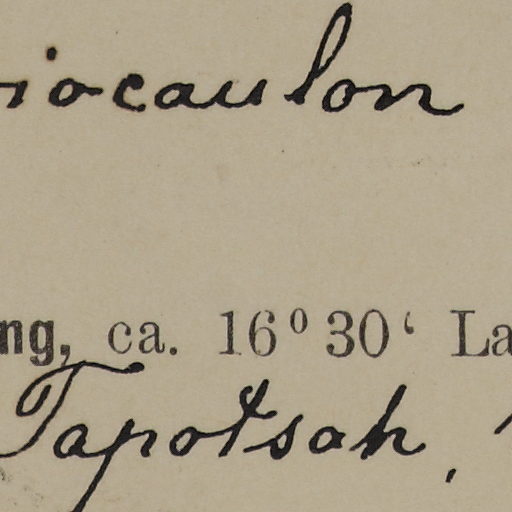 iocaulon
ng, ca. 16° 30‘ La
Tapotsah,